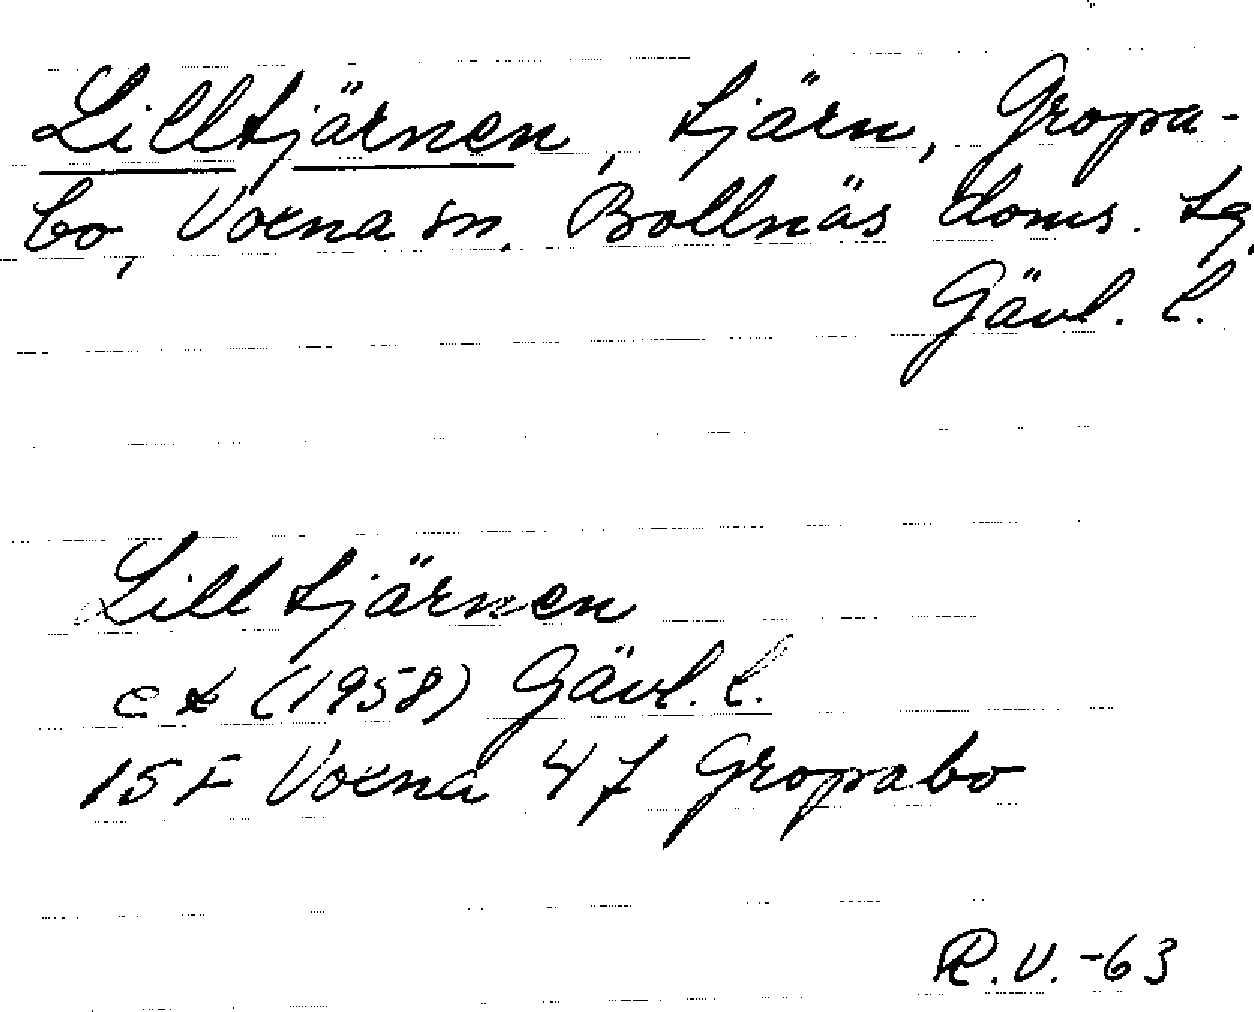 Lilltjärnen, tjärn, Gropa-
bo, Voxna sn. Bollnäs doms. tg.
Gävl. l.
Lilltjärnen
ek (1958) Gävl. l.
15 F Voxna 4 f Gropabo
R.V. -63